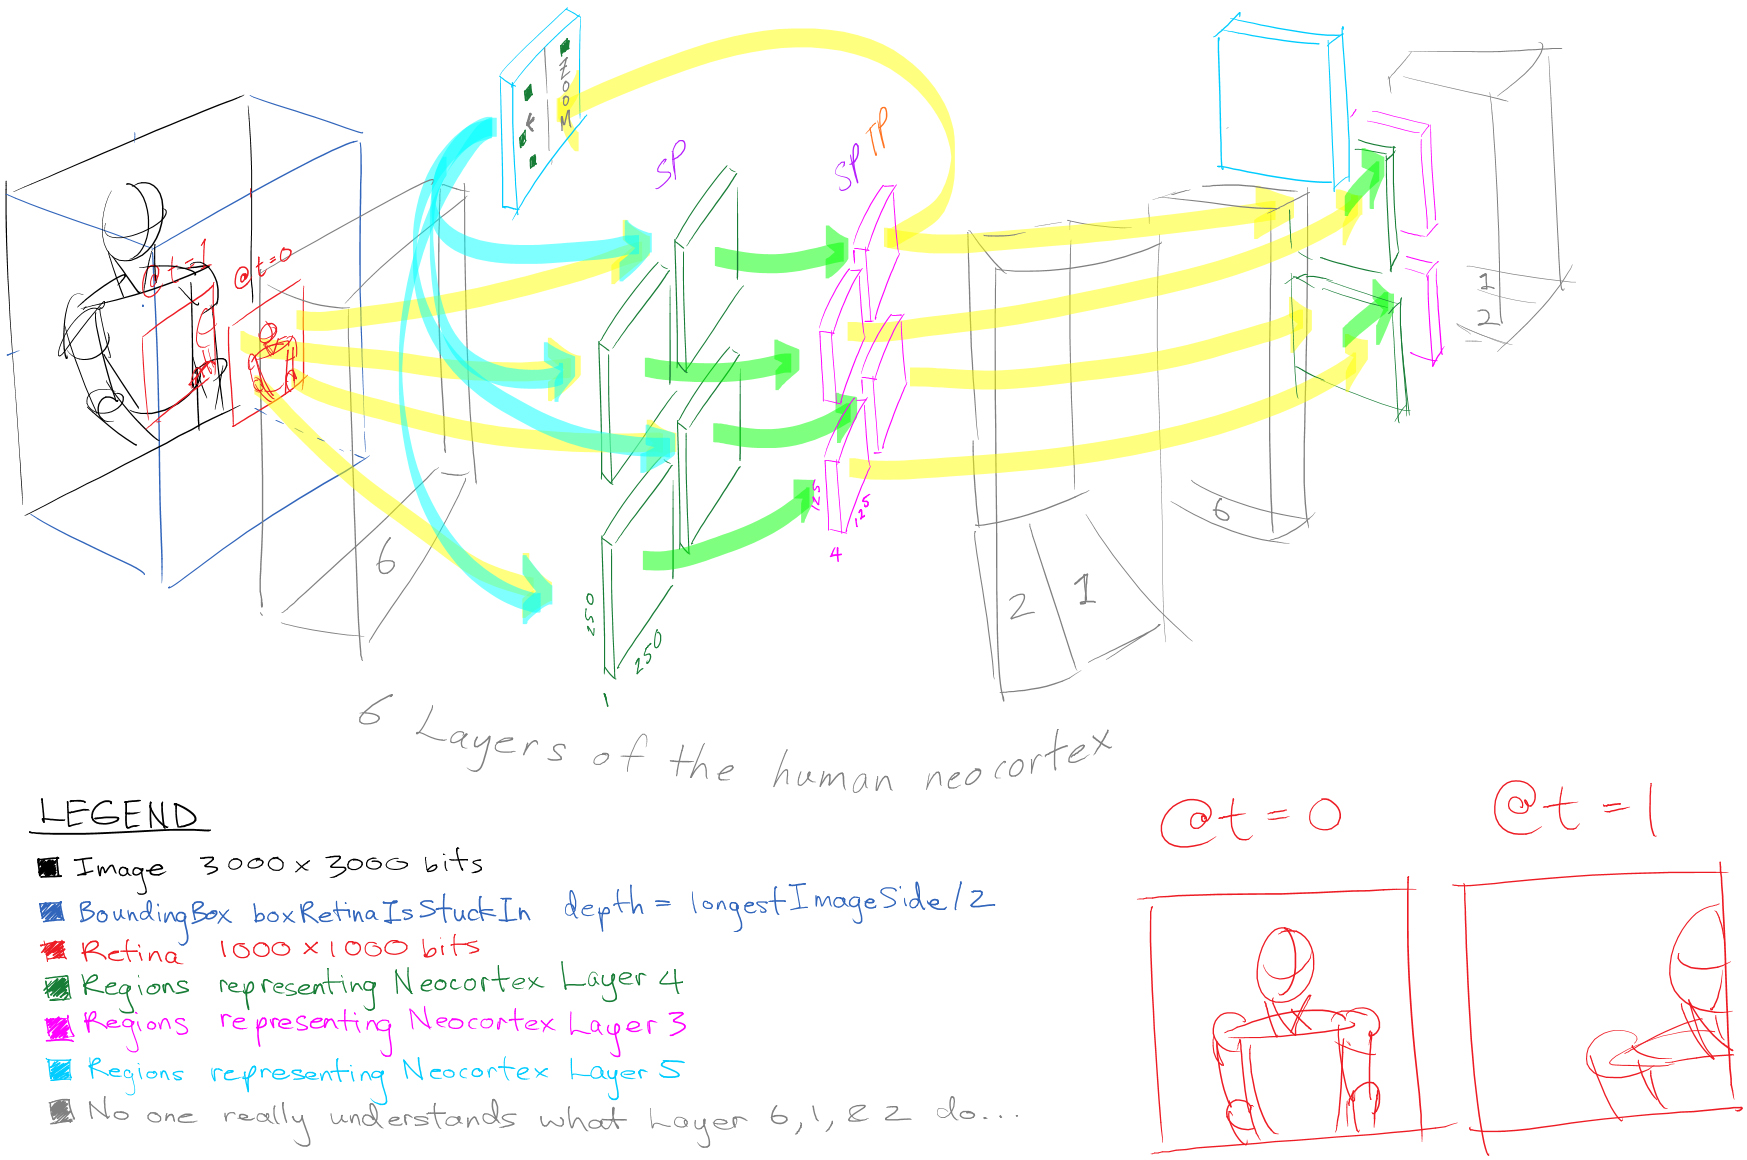 ZOOM
K
SP
SP TP
@ t = 1
@ t = 0
6
250
250
1
125
125
4
2
1
6
1
2
6 Layers of the human neocortex
LEGEND
Image 3000 x 3000 bits
BoundingBox boxRetinaIsStuckIn depth = longestImageSide/2
Retina 1000 x 1000 bits
Regions representing Neocortex Layer 4
Regions representing Neocortex Layer 3
Regions representing Neocortex Layer 5
No one really understands what Layer 6, 1, & 2 do...
@t = 0
@t = 1